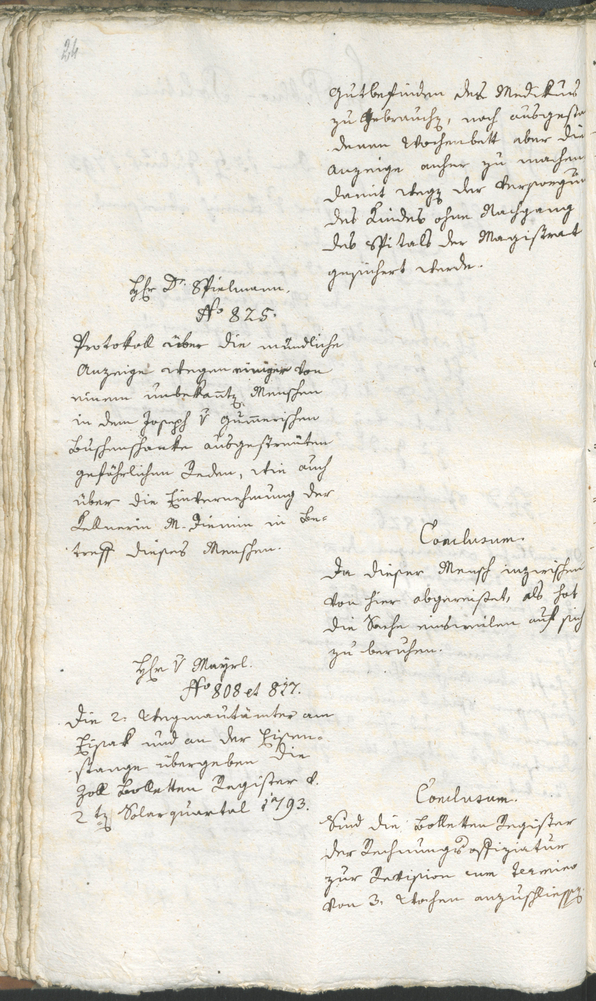 24
Gutbefinden des Medikus
zu gebrauchen, nach ausgesta
denen Wochenbett aber die
Anzeige anher zu machen
damit wegen der Versorgun
des Kindes ohne Nachgang
des Spitals der Magistrat
gesichert werde.
Hr. Dr. Spielmann.
No 825.
Protokoll über die mündliche
Anzeige wegen einiger von
einem unbekannten Menschen
in dem Joseph v Gummerischen
Buschenschanke ausgestreuten
gefährlichen Reden, wie auch
über die Einvernehmung der
Kellnerin M. Diemin in Be-
treff dieses Menschen.
Conclusum.
Da dieser Mensch inzwischen
von hier abgereiset, als hat
die Sache einsweilen auf sich
zu beruhen.
Hr. v Mayrl.
No 808 et 817.
Die 2. Wegmautämter am
Eisak und an der Eisen-
stange übergeben die
Zoll Bolletten Register d.
2ten Solarquartal 1793.
Conclusum.
Sind die Bolletten Register
der Rechnungsoffiziatur
zur Revision cum termino
von 3. Wochen anzuschliessen